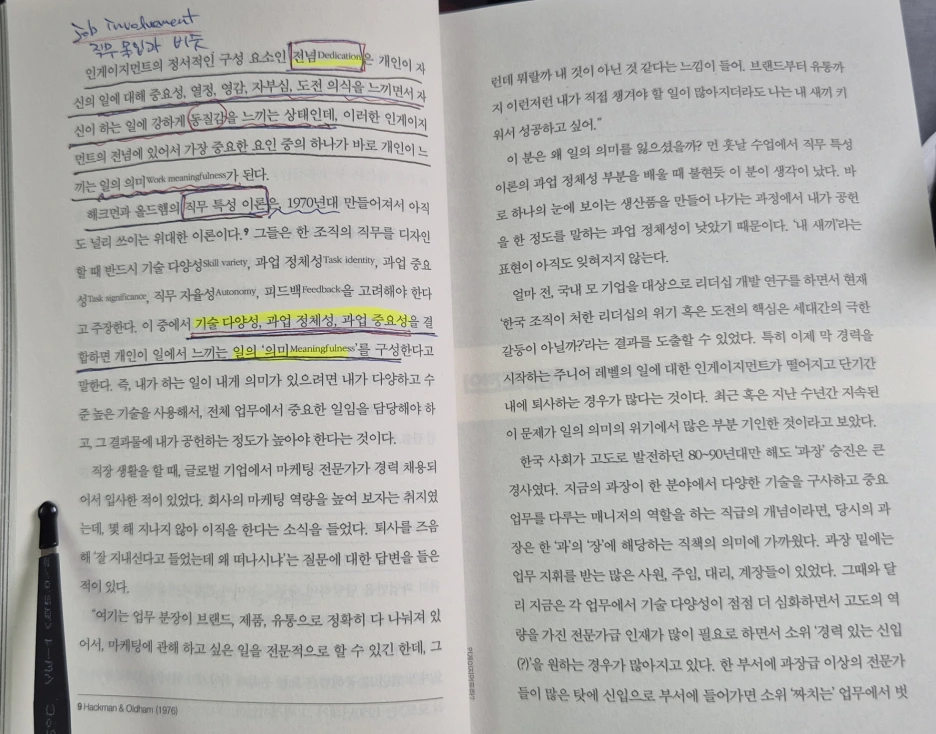 job involvement
직무 몰입과 비슷
인게이지먼트의 정서적인 구성 요소인 전념Dedication은 개인이 자
신의 일에 대해 중요성, 열정, 영감, 자부심, 도전 의식을 느끼면서 자
신이 하는 일에 강하게 동질감을 느끼는 상태인데, 이러한 인게이지
먼트의 전념에 있어서 가장 중요한 요인 중의 하나가 바로 개인이 느
끼는 일의 의미Work meaningfulness가 된다.
해크먼과 올드햄의 직무 특성 이론은, 1970년대 만들어져서 아직
도 널리 쓰이는 위대한 이론이다.9 그들은 한 조직의 직무를 디자인
할 때 반드시 기술 다양성Skill variety, 과업 정체성Task identity, 과업 중요
성Task significance, 직무 자율성Autonomy, 피드백Feedback을 고려해야 한다
고 주장한다. 이 중에서 기술 다양성, 과업 정체성, 과업 중요성을 결
합하면 개인이 일에서 느끼는 일의 '의미Meaningfulness'를 구성한다고
말한다. 즉, 내가 하는 일이 내게 의미가 있으려면 내가 다양하고 수
준 높은 기술을 사용해서, 전체 업무에서 중요한 일임을 담당해야 하
고, 그 결과물에 내가 공헌하는 정도가 높아야 한다는 것이다.
직장 생활을 할 때, 글로벌 기업에서 마케팅 전문가가 경력 채용되
어서 입사한 적이 있었다. 회사의 마케팅 역량을 높여 보자는 취지였
는데, 몇 해 지나지 않아 이직을 한다는 소식을 들었다. 퇴사를 즈음
해 '잘 지내신다고 들었는데 왜 떠나시나'는 질문에 대한 답변을 들은
적이 있다.
"여기는 업무 분장이 브랜드, 제품, 유통으로 정확히 다 나눠져 있
어서, 마케팅에 관해 하고 싶은 일을 전문적으로 할 수 있긴 한데, 그
9 Hackman & Oldham (1976)
런데 뭐랄까 내 것이 아닌 것 같다는 느낌이 들어. 브랜드부터 유통까
지 이런저런 내가 직접 챙겨야 할 일이 많아지더라도 나는 내 새끼 키
워서 성공하고 싶어."
이 분은 왜 일의 의미를 잃으셨을까? 먼 훗날 수업에서 직무 특성
이론의 과업 정체성 부분을 배울 때 불현듯 이 분이 생각이 났다. 바
로 하나의 눈에 보이는 생산품을 만들어 나가는 과정에서 내가 공헌
을 한 정도를 말하는 과업 정체성이 낮았기 때문이다. '내 새끼'라는
표현이 아직도 잊혀지지 않는다.
얼마 전, 국내 모 기업을 대상으로 리더십 개발 연구를 하면서 현재
'한국 조직이 처한 리더십의 위기 혹은 도전의 핵심은 세대간의 극한
갈등이 아닐까?'라는 결과를 도출할 수 있었다. 특히 이제 막 경력을
시작하는 주니어 레벨의 일에 대한 인게이지먼트가 떨어지고 단기간
내에 퇴사하는 경우가 많다는 것이다. 최근 혹은 지난 수년간 지속된
이 문제가 일의 의미의 위기에서 많은 부분 기인한 것이라고 보았다.
한국 사회가 고도로 발전하던 80~90년대만 해도 '과장' 승진은 큰
경사였다. 지금의 과장이 한 분야에서 다양한 기술을 구사하고 중요
업무를 다루는 매니저의 역할을 하는 직급의 개념이라면, 당시의 과
장은 한 '과'의 '장'에 해당하는 직책의 의미에 가까웠다. 과장 밑에는
업무 지휘를 받는 많은 사원, 주임, 대리, 계장들이 있었다. 그때와 달
리 지금은 각 업무에서 기술 다양성이 점점 더 심화하면서 고도의 역
량을 가진 전문가급 인재가 많이 필요로 하면서 소위 '경력 있는 신입
(?)'을 원하는 경우가 많아지고 있다. 한 부서에 과장급 이상의 전문가
들이 많은 탓에 신입으로 부서에 들어가면 소위 '짜치는' 업무에서 벗